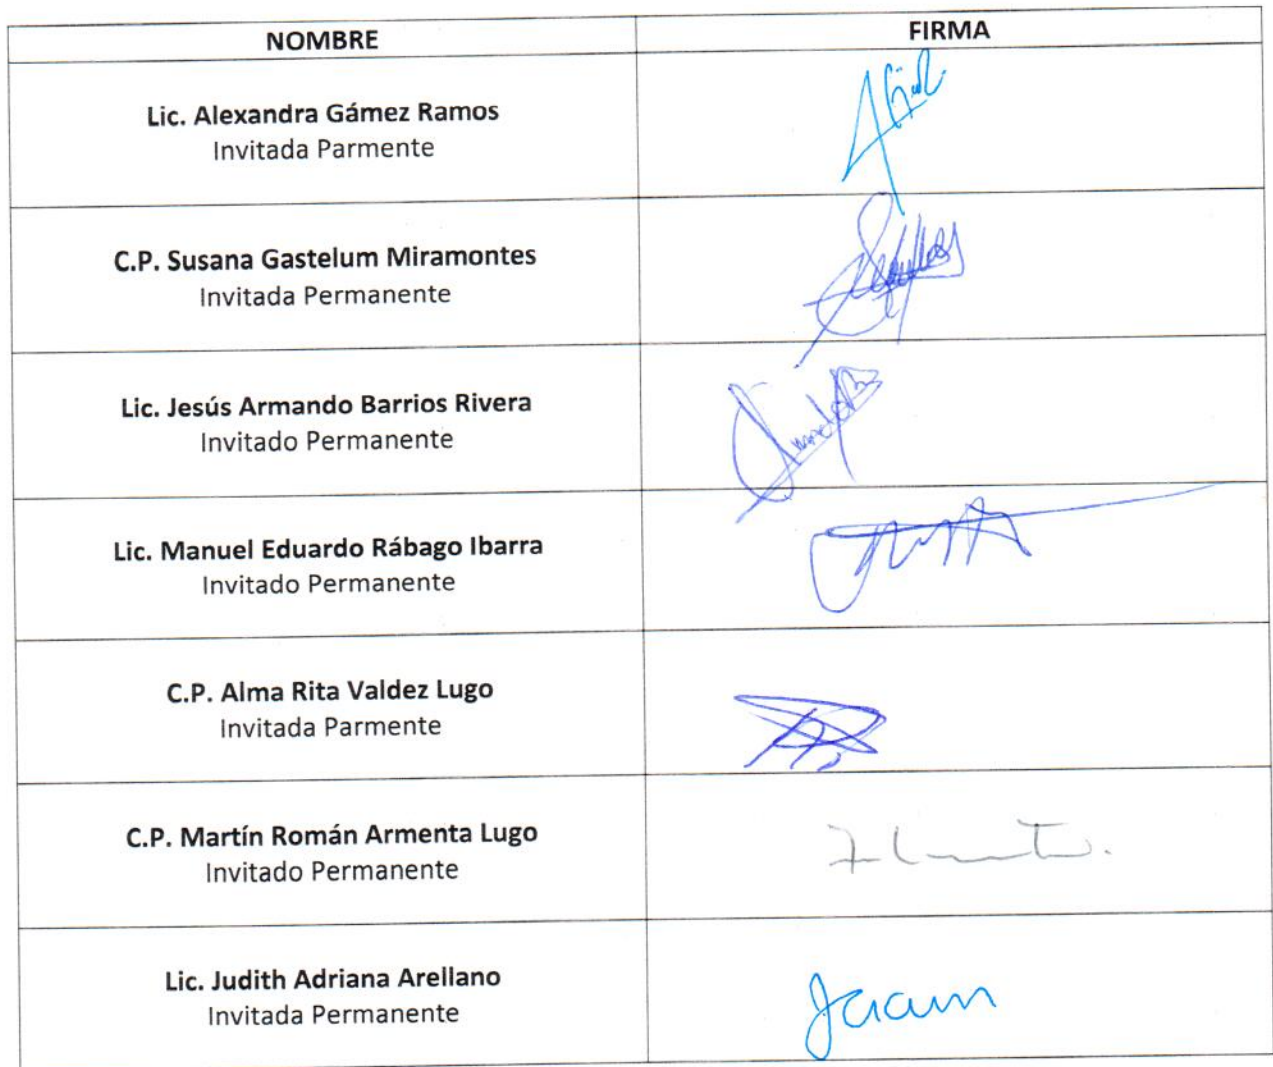 NOMBRE FIRMA
Lic. Alexandra Gámez Ramos
Invitada Parmente
C.P. Susana Gastelum Miramontes
Invitada Permanente
Lic. Jesús Armando Barrios Rivera
Invitado Permanente
Lic. Manuel Eduardo Rábago Ibarra
Invitado Permanente
C.P. Alma Rita Valdez Lugo
Invitada Parmente
C.P. Martín Román Armenta Lugo
Invitado Permanente
Lic. Judith Adriana Arellano
Invitada Permanente